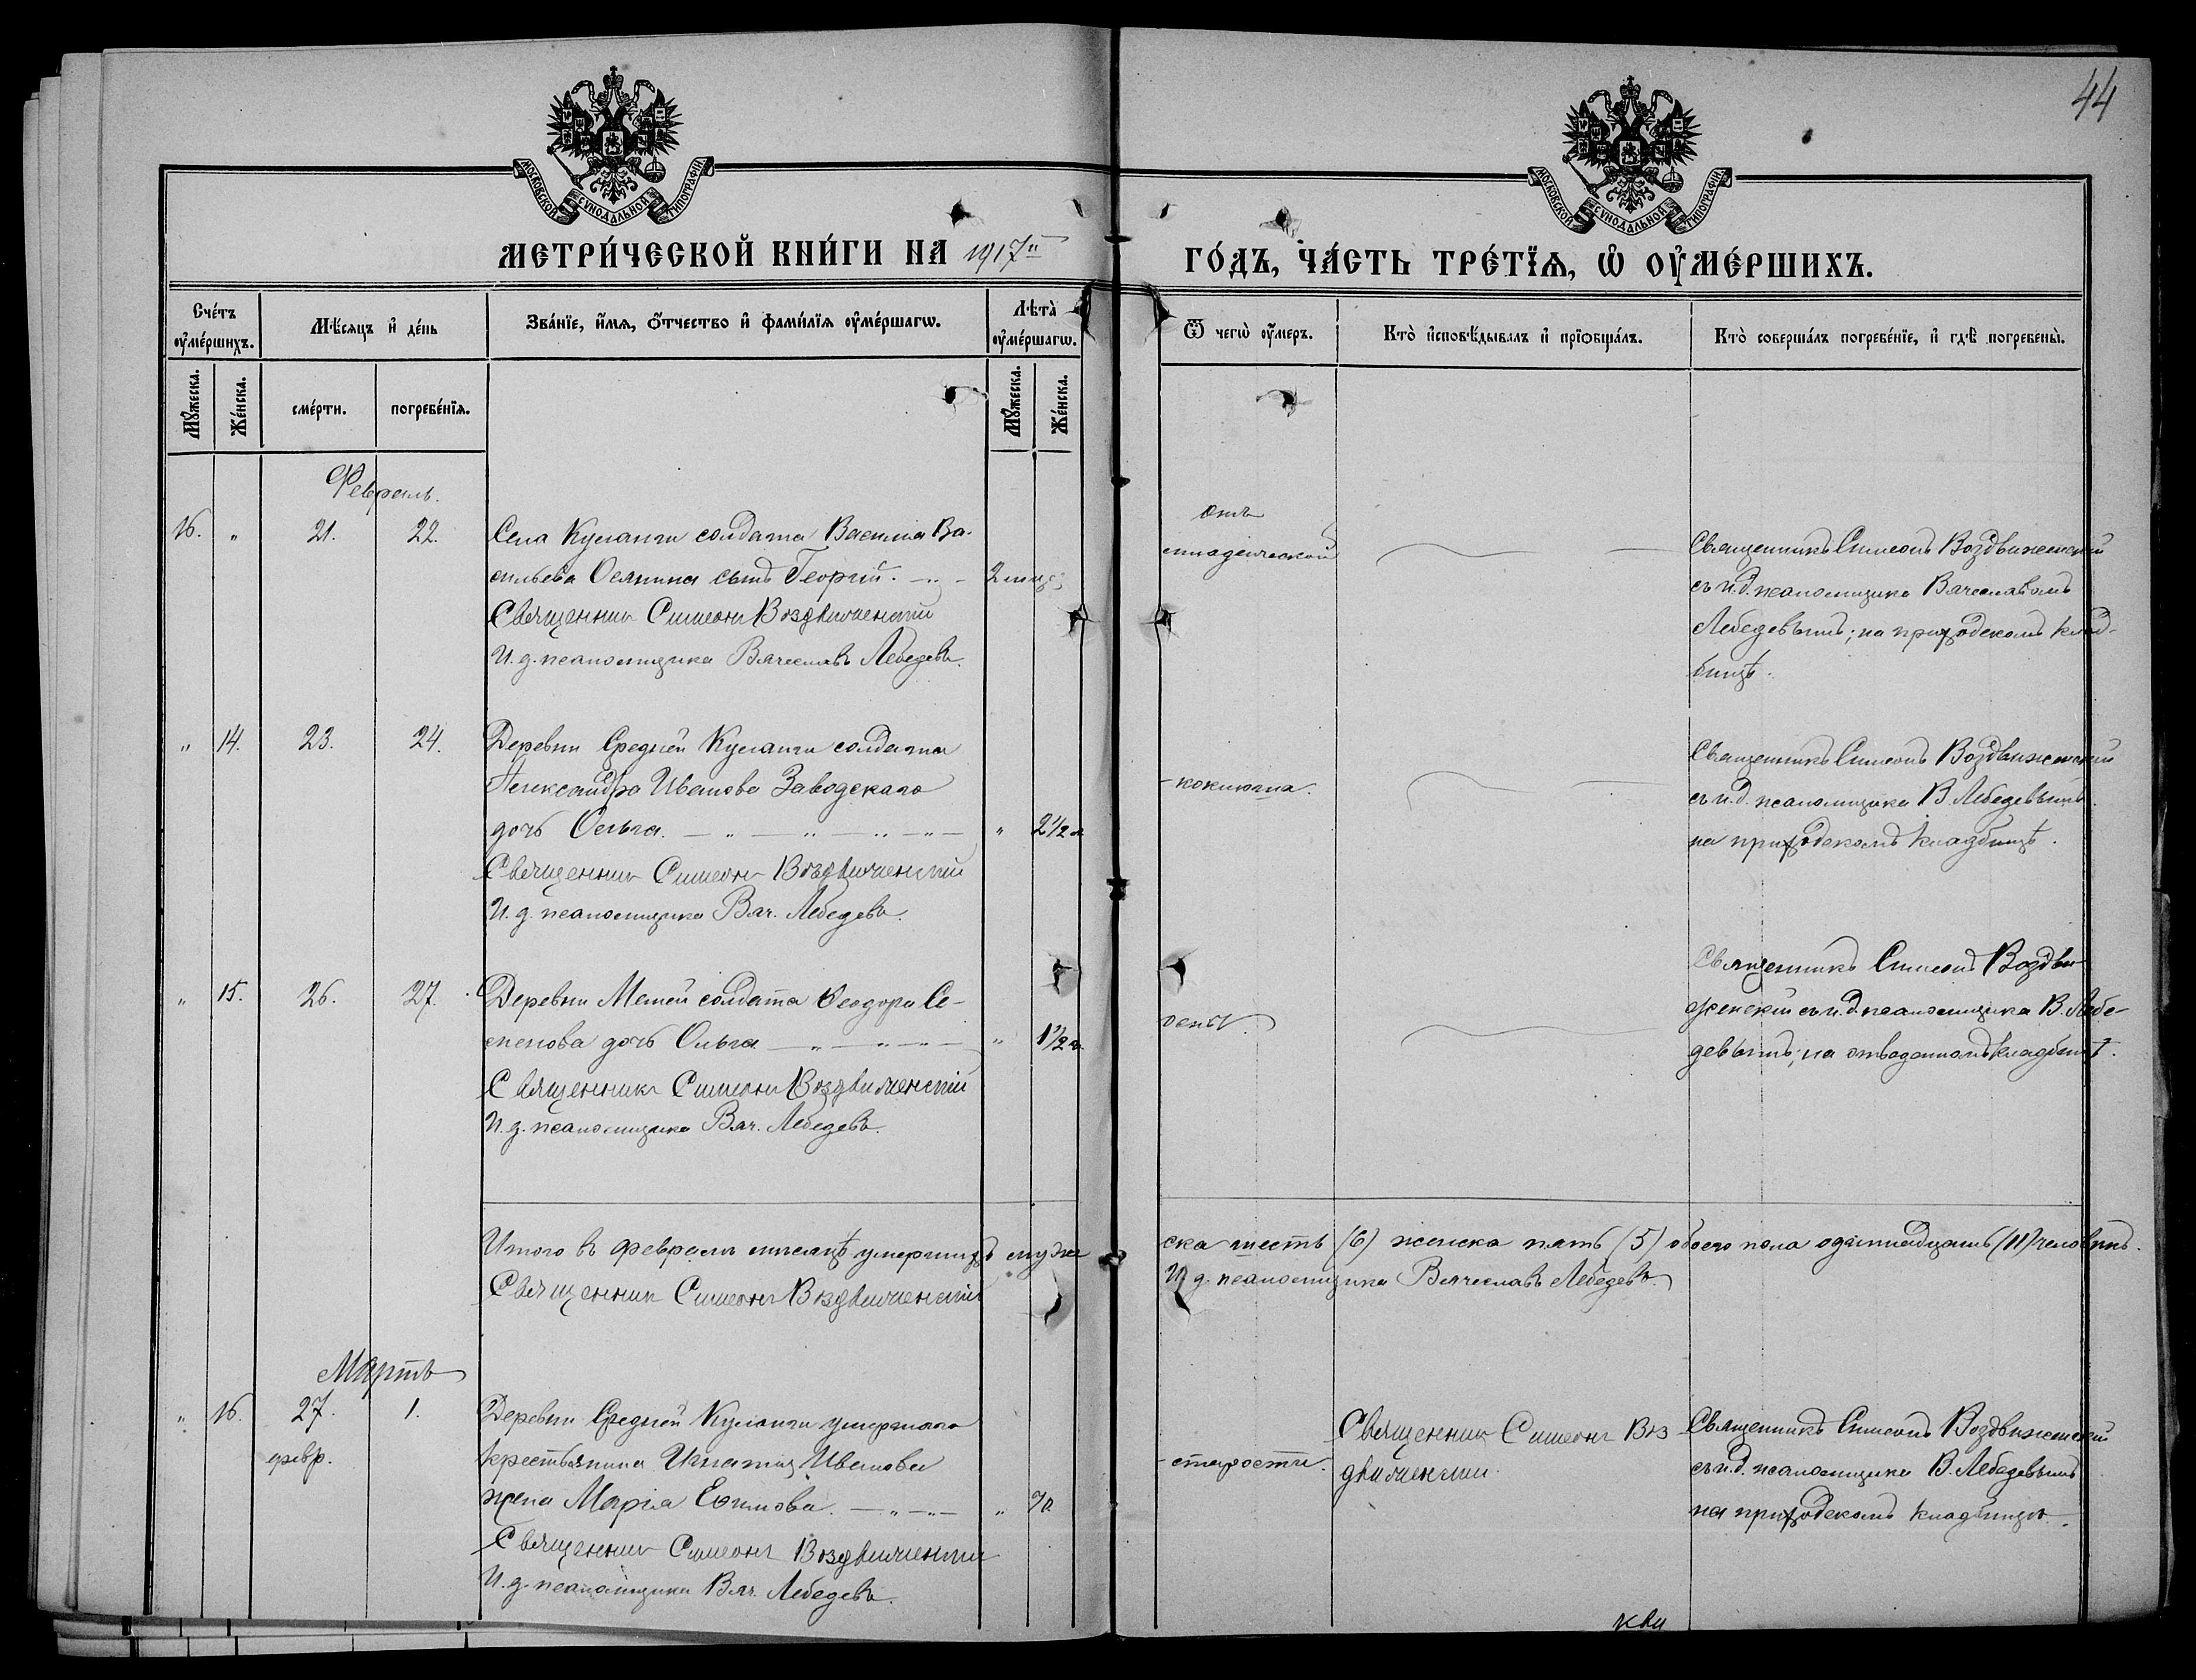 44
МОСКОВСКОЙ СѴНОДАЛЬНОЙ ТИПОГРАФІИ
МОСКОВСКОЙ СѴНОДАЛЬНОЙ ТИПОГРАФІИ
МЕТРИ́ЧЕСКОЙ КНИ́ГИ НА 1917й
ГО́ДЪ, ЧА́СТЬ ТРЕ́ТЇѦ, Ѡ҆ ОУ҆МЕ́РШИХЪ.
Сче́тъ оу҆ме́ршихъ.
Мѣ́сяцъ и҆ де́нь
Зва́нїе, и҆́мѧ, ѻ҆́тчество и҆ фами́лїѧ оу҆ме́ршагѡ.
Лѣта̀ оу҆ме́ршагѡ.
Ѿ чегѡ̀ оу҆́меръ.
Кто̀ и҆сповѣ́дывалъ и҆ прїѻбща́лъ.
Кто̀ соверша́лъ погребе́нїе, и҆ гдѣ̀ погребены̀.
Мꙋ́жеска.
Же́нска.
сме́рти.
погребе́нїѧ.
Мꙋ́жеска.
Же́нска.
Февраль.
16. " 21. 22.
Села Куланги солдата Василiя Ва-
сильева сынъ Георгiй. 2 мѣс.
Священникъ Симеонъ Воздвиженскiй
И. д. псаломщика Вячеславъ Лебедевъ.
отъ
младенческой
Священникъ Симеонъ Воздвиженскiй
съ и. д. псаломщика Вячеславомъ
Лебедевымъ; на приходскомъ клад-
бищѣ.
" 14. 23. 24.
Деревни Средней Куланги солдата
Александра Иванова Заводскаго
дочь Ольга. " 2 1/2 л
Священникъ Симеонъ Воздвиженскiй
И. д. псаломщика Вяч. Лебедевъ.
- коклюша.
Священникъ Симеонъ Воздвиженскiй
съ и. д. псаломщика В. Лебедевымъ
на приходскомъ кладбищѣ.
" 15. 26. 27.
Деревни солдата Ѳеодора Се-
менова дочь Ольга " 1 1/2 г.
Священникъ Симеонъ Воздвиженскiй
И. д. псаломщика Вяч. Лебедевъ.
оспы.
Священникъ Симеонъ Воздви-
женскiй съ и. д. псаломщика В. Лебе-
девымъ; на отведенномъ кладбищѣ.
Итого въ февралѣ мѣсяцѣ умершихъ муже
ска шесть (6) женска пять (5) обоего пола одиннадцать (11) человѣкъ.
Священникъ Симеонъ Воздвиженскiй
И. д. псаломщика Вячеславъ Лебедевъ.
Мартъ
" 16. 27. 1.
февр.
Деревни Средней Куланги умершаго
крестьянина Игнатiя Иванова
жена Марiя Евѳимова. " 70.
Священникъ Симеонъ Воздвиженскiй
И. д. псаломщика Вяч. Лебедевъ.
- старости.
Священникъ Симеонъ Воз
движенскiй.
Священникъ Симеонъ Воздвиженскiй
съ и. д. псаломщика В. Лебедевымъ
на приходскомъ кладбищѣ.